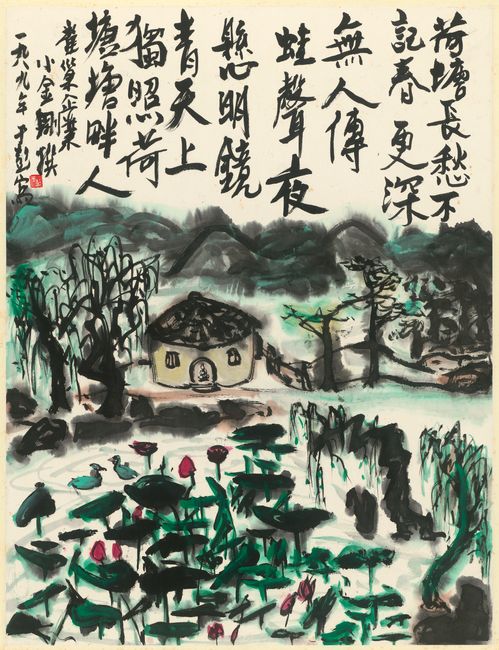 荷塘長愁不
記春更深
無人傳
蛙聲夜
懸心明鏡
青天上
獨照荷
塘塘畔人
小金剛撰
一九八九年于彭寫